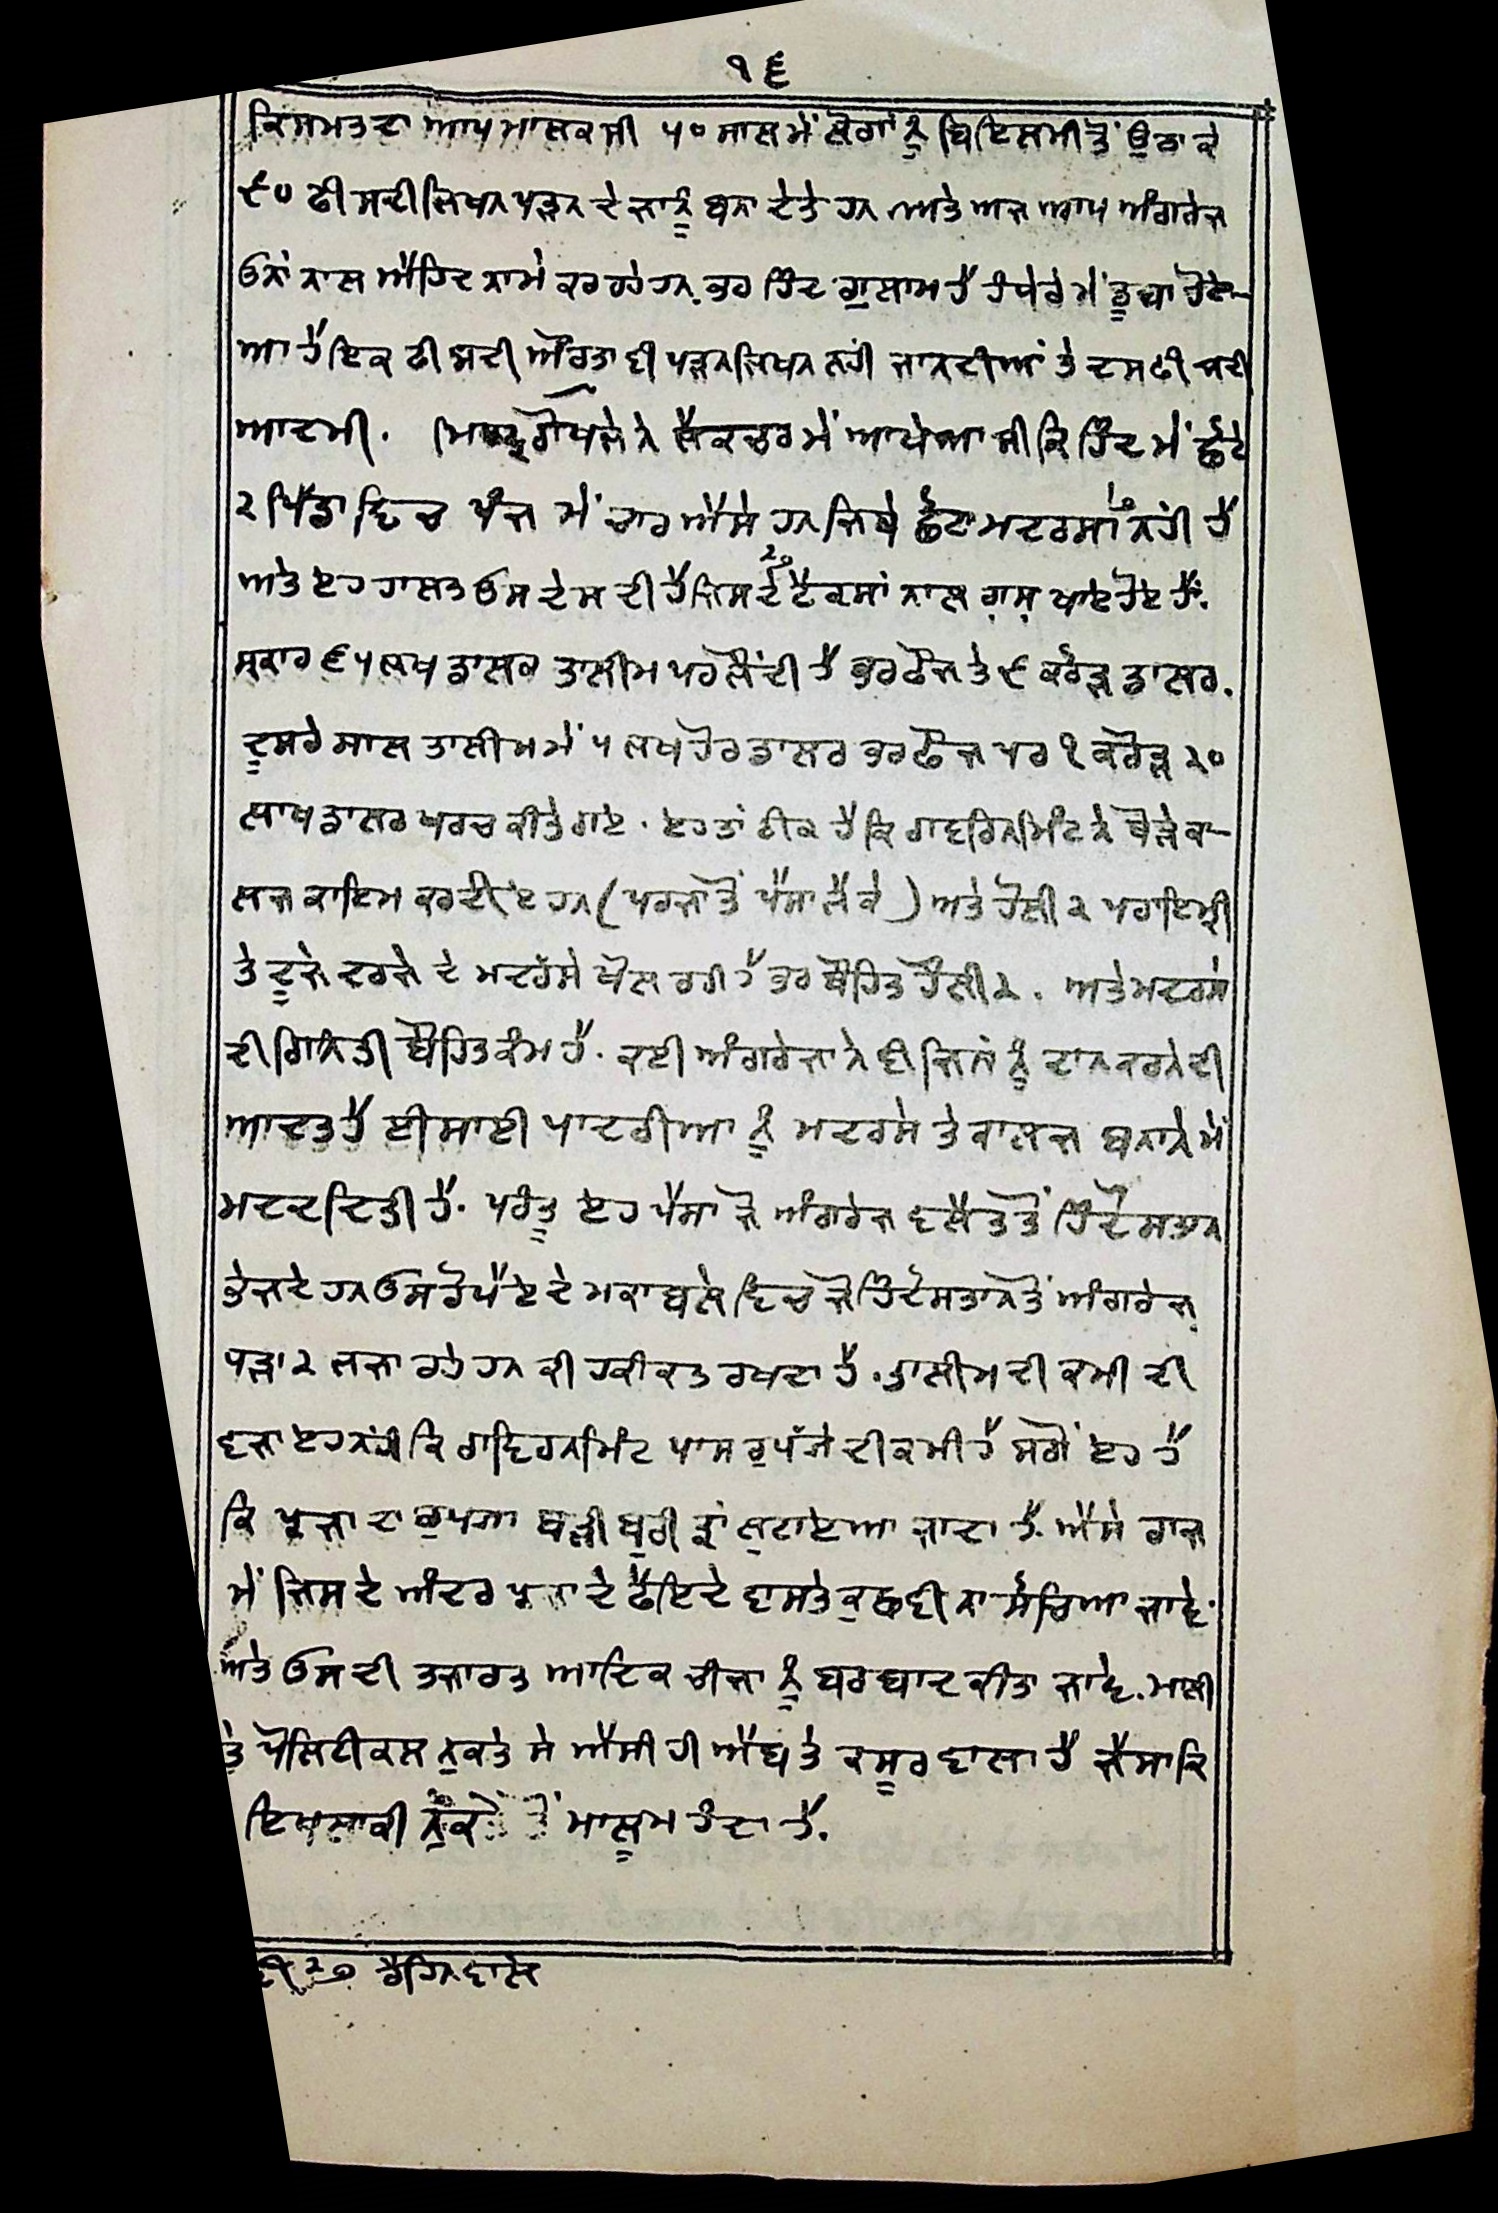 ੧੬
ਕਿਸਮਤ ਦਾ ਆਪ ਮਾਲਕ ਸੀ ੫੦ ਸਾਲ ਮੇਂ ਲੋਗਾਂ ਨੂੰ ਬਿਇਲਮੀ ਤੋਂ ਉਠਾ ਕੇ
੯੦ ਫੀ ਸਦੀ ਲਿਖਨ ਪੜਨ ਦੇ ਜਾਨੂ ਬਨਾ ਦੇਤੇ ਹਨ ਅਤੇ ਅਜ ਆਪ ਅੰਗਰੇਜ
ਉਨਾਂ ਨਾਲ ਐਹਿਦ ਨਾਮੇ ਕਰ ਰਹੇ ਹਨ. ਭਰ ਹਿੰਦ ਗੁਲਾਮ ਹੈ ਹੰਧੇਰੇ ਮੇਂ ਡੂਬਾ ਹੋਏ-
ਆ ਹੈ ਇਕ ਫੀ ਸਦੀ ਔਰਤਾ ਵੀ ਪੜਨ ਲਿਖਨ ਨਹੀ ਜਾਨਦੀਆਂ ਤੇ ਦਸ ਫੀ ਸਦੀ
ਆਦਮੀ. ਗੋਖਲੇ ਨੇ ਲੈਕਚਰ ਮੇਂ ਆਖੇਆ ਸੀ ਕਿ ਹਿੰਦ ਮੇਂ ਛੋਟੇ
੨ ਪਿੰਡਾ ਵਿਚ ਪੰਜ ਮੇਂ ਚਾਰ ਐਸੇ ਹਨ ਜਿਥੇ ਛੋਟਾ ਮਦਰਸਾ ਨਹੀ ਹੈ
ਅਤੇ ਏਹ ਹਾਲਤ ਉਸ ਦੇਸ ਦੀ ਹੈ ਜਿਸ ਦੇ ਟੈਕਸਾਂ ਨਾਲ ਗੁਸ਼ ਖਾਏ ਹੋਏ ਹੈਂ.
ਸ੍ਰਕਾਰ ੬੫ ਲਖ ਡਾਲਰ ਤਾਲੀਮ ਪਰ ਲੌਂਦੀ ਹੈ ਭਰ ਫੌਜ ਤੇ ੯ ਕਰੋੜ ਡਾਲਰ.
ਦੂਸਰੇ ਸਾਲ ਤਾਲੀਮ ਮੇਂ ੫ ਲਖ ਹੋਰ ਡਾਲਰ ਭਰ ਫੌਜ ਪਰ ੧ ਕਰੋੜ ੨੦
ਲਾਖ ਡਾਲਰ ਖਰਚ ਕੀਤੇ ਗਏ. ਏਹ ਤਾਂ ਠੀਕ ਹੈ ਕਿ ਗਵਰਿਨਮਿੰਟ ਨੇ ਥੋੜੇ ਕਾ-
ਲਜ ਕਾਇਮ ਕਰ ਦੀਏ ਹਨ (ਪਰਜਾ ਤੋਂ ਪੈਸਾ ਲੈ ਕੇ) ਅਤੇ ਹੌਲੀ ੨ ਪਰਾਇਮ੍ਰੀ
ਤੇ ਦੂਜੇ ਦਰਜੇ ਦੇ ਮਦਰੱਸੇ ਖੋਲ ਰਹੀ ਹੈ ਭਰ ਬੌਹਿਤ ਹੌਲੀ ੨. ਅਤੇ ਮਦਰਸੇ
ਦੀ ਗਿਨਤੀ ਬੌਹਿਤ ਕੰਮ ਹੈ. ਕਈ ਅੰਗਰੇਜਾ ਨੇ ਵੀ ਜਿਨਾਂ ਨੂੰ ਦਾਨ ਕਰਨੇ ਦੀ
ਆਦਤ ਹੈ ਈਸਾਈ ਪਾਦਰੀਆ ਨੂੰ ਮਦਰਸੇ ਤੇ ਕਾਲਜ ਬਨਾਨੇ ਮੇਂ
ਮਦਦ ਦਿਤੀ ਹੈ. ਪਰੰਤੂ ਏਹ ਪੈਸਾ ਜੋ ਅੰਗਰੇਜ ਵਲੈਤ ਤੋਂ ਹਿੰਦੋਸਤਾਨ
ਭੇਜਦੇ ਹਨ ਉਸ ਰੋਪੈਏ ਦੇ ਮਕਾਬਲੇ ਵਿਚ ਜੋ ਹਿੰਦੋਸਤਾਨ ਤੋਂ ਅੰਗਰੇਜ਼
ਧੜਾ ੨ ਲਜਾ ਰਹੇ ਹਨ ਕੀ ਹਕੀਕਤ ਰਖਦਾ ਹੈ. ਤਾਲੀਮ ਦੀ ਕਮੀ ਦੀ
ਵਜਾ ਏਹ ਨਹੀ ਕਿ ਗਵਿਰਨਮਿੰਟ ਪਾਸ ਰੁਪੱਯੇ ਦੀ ਕਮੀ ਹੈ ਸਗੋਂ ਏਹ ਹੈ
ਕਿ ਪ੍ਰਜਾ ਦਾ ਰੁਪਯਾ ਬੜੀ ਬੁਰੀ ਤ੍ਰਾਂ ਲੁਟਾਏਆ ਜਾਦਾ ਹੈ. ਐਸੇ ਰਾਜ
ਮੇਂ ਜਿਸ ਦੇ ਅੰਦਰ ਪ੍ਰਜਾ ਦੇ ਫੈਇਦੇ ਵਾਸਤੇ ਕੁਛ ਵੀ ਨਾ ਸੋਚਿਆ ਜਾਵੇ.
ਅਤੇ ਉਸ ਦੀ ਤਜਾਰਤ ਆਦਿਕ ਚੀਜਾ ਨੂੰ ਬਰਬਾਦ ਕੀਤਾ ਜਾਵੇ. ਮਾਲੀ
ਤੇ ਪੋਲਿਟੀਕਲ ਨੁਕਤੇ ਸੇ ਐਸੀ ਹੀ ਐਬ ਤੇ ਕਸੂਰ ਵਾਲਾ ਹੈ ਜੈਸਾ ਕਿ
ਇਖਲਾਕੀ ਨੁਕਤੇ ਤੋਂ ਮਾਲੂਮ ਹੰਦਾ ਹੈ.